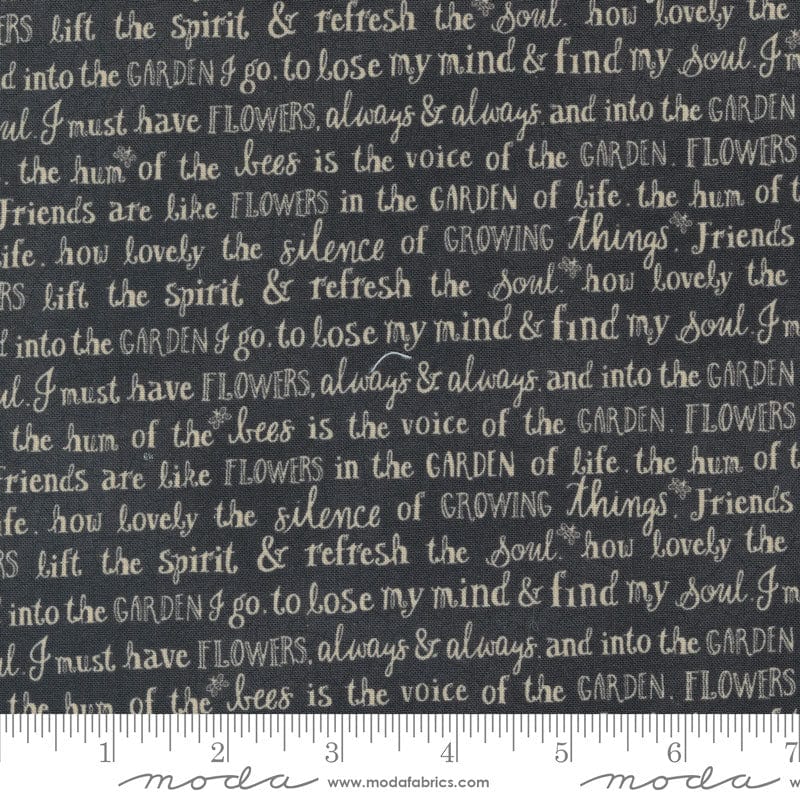 ERS lift the spirit & refresh the soul. how lovely the
d into the GARDEN I go. to lose my mind & find my soul. I m
ul. I must have FLOWERS, always & always. and into the GARDEN
. the hum of the bees is the voice of the GARDEN. FLOWERS
Friends are like FLOWERS in the GARDEN of life. the hum of t
ife. how lovely the silence of GROWING things. Friends
RS lift the spirit & refresh the soul. how lovely the
d into the GARDEN I go. to lose my mind & find my soul. I m
ul. I must have FLOWERS, always & always. and into the GARDEN
the hum of the bees is the voice of the GARDEN. FLOWERS
riends are like FLOWERS in the GARDEN of life. the hum of t
ife. how lovely the silence of GROWING things. Friends
ERS lift the spirit & refresh the soul. how lovely the
d into the GARDEN I go. to lose my mind & find my soul. I m
ul. I must have FLOWERS, always & always. and into the GARDEN
the hum of the bees is the voice of the GARDEN. FLOWERS
1 2 3 4 5 6 7
moda www.modafabrics.com moda w